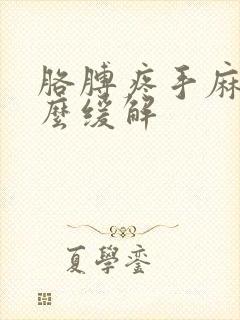 胳膊疼手麻
麼缓解
夏學銮